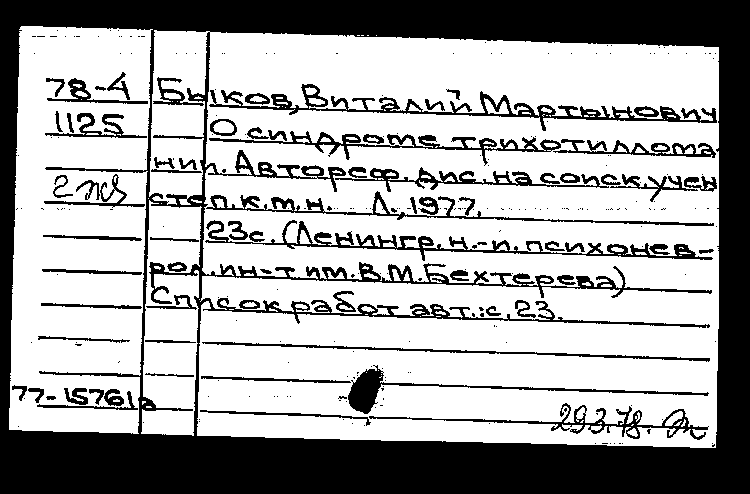 78-4 Быков, Виталий Мартынович
1125 О синдроме трихотиллома-
нии. Автореф. дис. на соиск. учен
2 экз степ. к.м.н. Л., 1977.
23с. (Ленингр. н.-и. психонев-
рол. ин-т им. В.М. Бехтерева)
Список работ авт.: с. 23.
77-15761а
29 3.78.